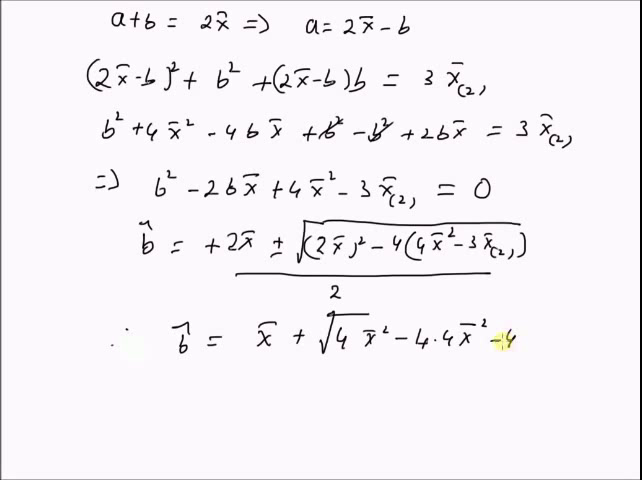 a+b = 2x̄ => a = 2x̄ - b
(2x̄-b)² + b² + (2x̄-b)b = 3 x̄(2)
b² + 4x̄² - 4bx̄ + b² - b² + 2bx̄ = 3 x̄(2)
=> b² - 2bx̄ + 4x̄² - 3x̄(2) = 0
b̂ = +2x̄ ± √((2x̄)² - 4(4x̄² - 3x̄(2)))
2
∴ b̂ = x̄ + √4x̄² - 4·4x̄² - 4